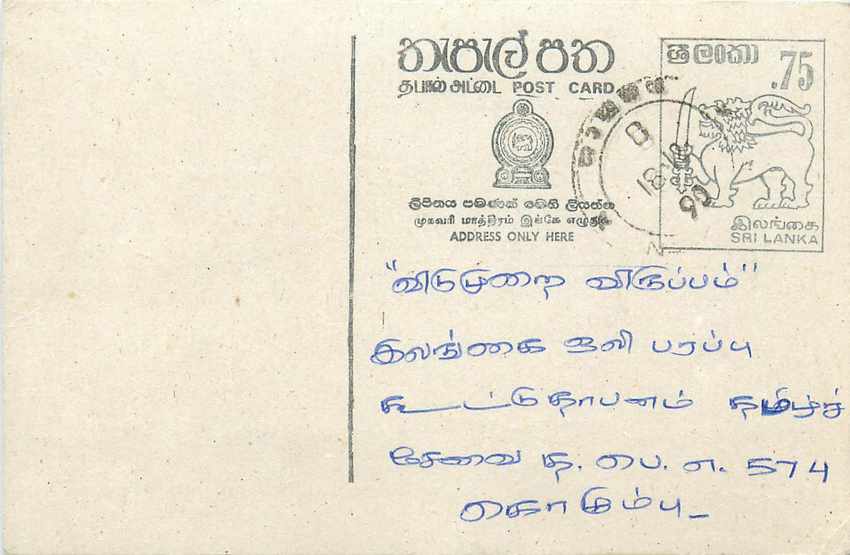 තැපැල් පත
தபால் அட்டை POST CARD
ශ්‍රී ලංකා
.75
ලිපිනය පමණක් මෙහි ලියන්න
முகவரி மாத்திரம் இங்கே எழுதுக
ADDRESS ONLY HERE
இலங்கை
SRI LANKA
"விடுமுறை விருப்பம்"
இலங்கை ஒலி பரப்பு
கூட்டுதாபனம் தமிழ்ச்
சேவை த. பெ. எ. 574
கொழும்பு_